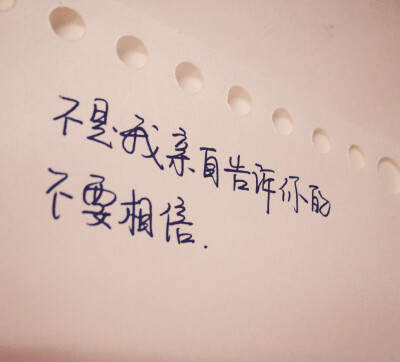 不是我亲自告诉你的
不要相信.